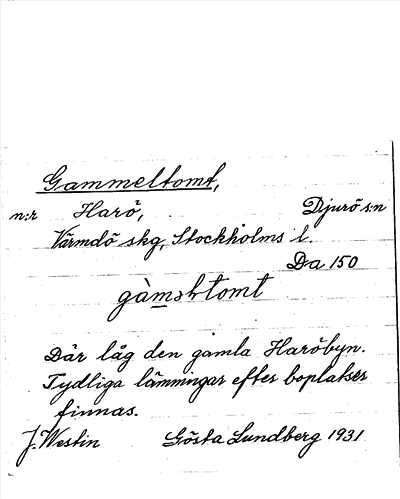 Gammeltomt,
n:r Harö, Djurö s:n
Värmdö skg, Stockholms l.
Da 150
gàməltomt
Där låg den gamla Haröbyn.
Tydliga lämningar efter boplatser
finnas.
J. Westin Gösta Lundberg 1931